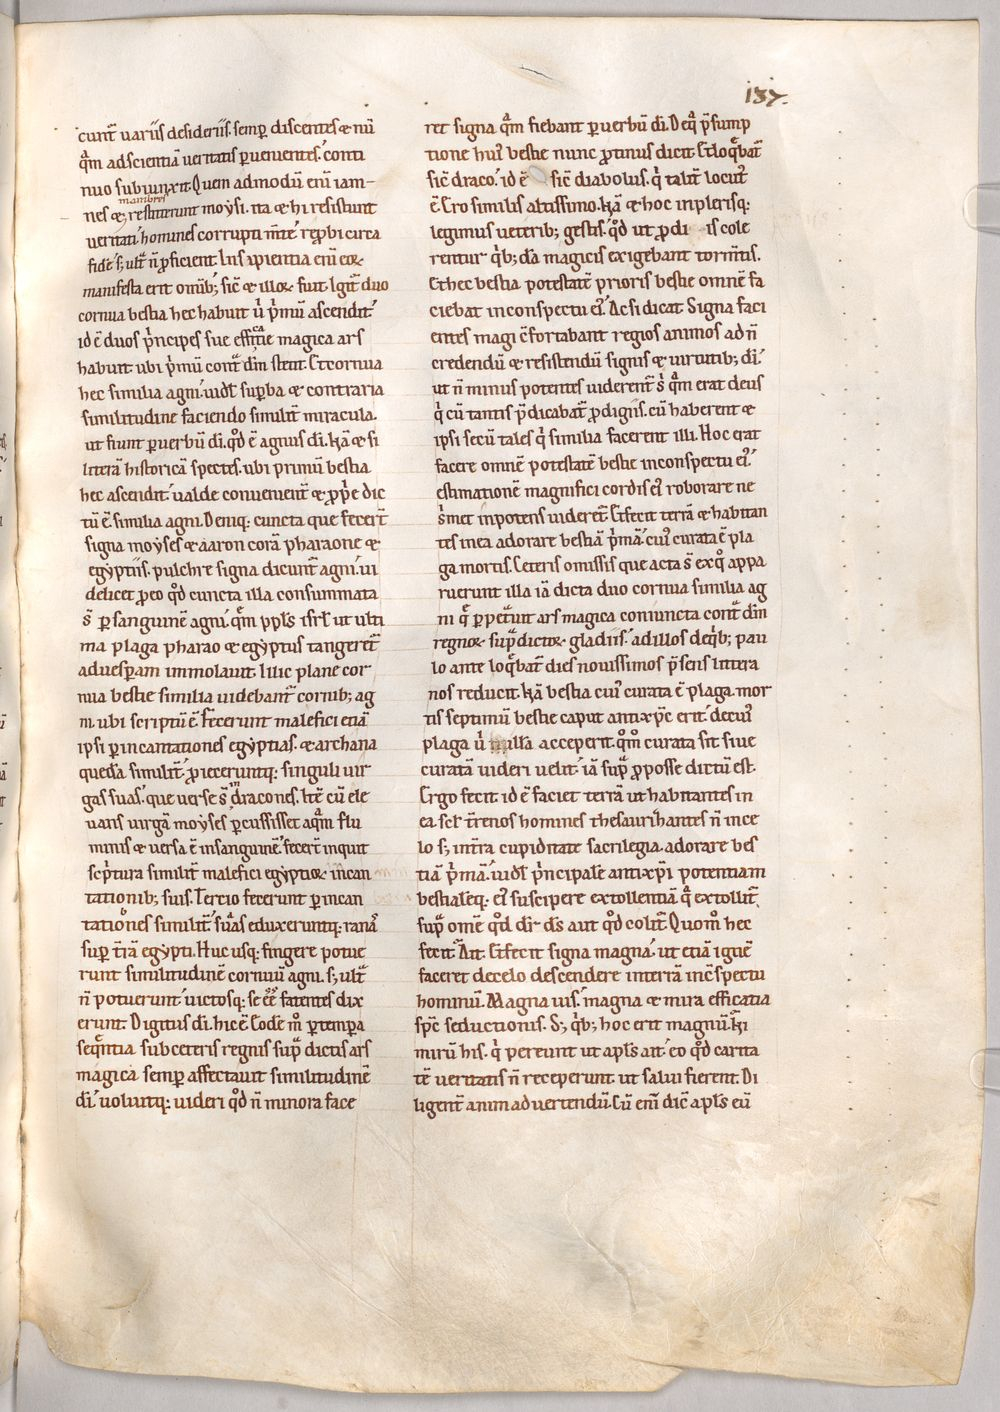 137.
cunt̄ uariis desideriis. semp̄ discentes & nū
q̄m ad scientiā ueritatis ꝑuenientes. conti
nuo subiunxit. Quem admodū enī iam-
mambres
nes &, restiterunt moysi. ita & hi resistunt
ueritati. homines corrupti m̄te. rep̄bi circa
fidē. s; ult̄ n̄ ꝓficient. Insipientia enī eoꝝ
manifesta erit omīb; sic̄ & illoꝝ fuit. Igit̄ duo
cornua bestia hec habuit u̇ p̄mū ascendit.
id ē duos p̄ncipes sue efficatie magica ars
habuit ubi p̄mū cont̄ dn̄m stetit. Et cornua
hec similia agni. uidl̄ suꝑba & contraria
similitudine faciendo similit̄ miracula.
ut fiunt ꝑ uerbū di. qd̄ ē agnus di. Nā & si
literā historicā spectes. ubi primū bestia
hec ascendit. ualde conuenient̄ & ꝓp̄e dic
tū ē. similia agni. Deniq; cuncta que fecer̄t
signa moyses & aaron corā pharaone &
egyptiis. pulchre signa dicunt̄ agni. ui
delicet ꝓ eo qd̄ cuncta illa consummata
s̄ ꝑ sanguinē agni. q̄m ppl̄s isrl̄ ut ulti
ma plaga pharao & egyptus tangeret̄
ad uesꝑam immolauit. Illic plane cor
nua bestie similia uidebant̄ cornib; ag
ni. ubi scriptū ē. Fecerunt malefici etiā
ipsi ꝑ incantationes egyptias. & archana
quedā similit̄. ꝓieceruntq; singuli uir
gas suas. que uerse s̄ in dracones. Itē cū ele
uans uirgā moyses ꝑcussisset aquā flu
minis & uersa ē in sanguinē. fecer̄t inquit
sc̄ptura similit̄ malefici egyptioꝝ incan
tationib; suis. Tercio fecerunt ꝑ incan
tationes similit̄ suas eduxeruntq; ranas
suꝑ t̄rā egypti. Huc usq; fingere potue
runt similitudinē cornuū agni. s; ult̄
n̄ potuerunt. uictosq; se ēē fatentes dix
erunt. Digitus di. hic ē. Eodē m̊ ꝑ tempa
seq̄ntia sub ceteris regnis sup̄ dictis ars
magica semꝑ affectauit similitudinē
di. uoluitq; uideri qd̄ n̄ minora face
ret signa q̄m fiebant ꝑ uerbū di. De q̄ p̄sump
tione hui' bestie nunc ꝓtinus dicit. Et loq̄bat̄
sic̄ draco. id ē sic̄ diabolus. q̇ talit̄ locut'
ē. Ero similis altissimo. Nā & hoc in plerisq;
legimus ueterib; gestis. qd̄ ut ꝓdi is cole
rentur q̇b; dā magicis exigebant torm̄tis.
Et hec bestia potestatē prioris bestie omnē fa
ciebat in conspectu ei'. Ac si dicat. Signa faci
entes magi c̄fortabant regios animos ad n̄
credendū & resistendū signis & uirtutib; di.
ut n̄ minus potentes uiderent̄ s̄ q̄m erat deus
q̇ cū tantis p̄dicabat̄ ꝓdigiis. cū haberent &
ipsi secū tales q̇ similia facerent illi. Hoc erat
facere omnē potestatē bestie in conspectu ei'.
estimationē magnifici cordis ei' roborare ne
s̄met inpotens uideret̄. Et fecit terrā & habitan
tes in ea adorare bestiā p̄mā. cui' curata ē pla
ga mortis. Ceteris omissis que acta s̄ ex q̊ appa
ruerunt illa iā dicta duo cornua similia ag
ni q̄ ꝑpetuit ars magica coniuncta cont̄ dn̄m
regnoꝝ sup̄dictoꝝ gladiis. ad illos de q̇b; pau
lo ante loq̄bat̄ dies nouissimos p̄sens littera
nos reducit. Nā bestia cui' curata ē plaga mor
tis septimū bestie caput antixp̄c erit. de cui'
plaga u̇ nulla acceperit. q̊m curata sit siue
curatā uideri uelit. iā sup̄ ꝓ posse dictū est.
Ergo fecit. id ē faciet terrā ut habitantes in
ea scl̄ t̄renos homines thesaurizantes n̄ in ce
lo s; in t̄ra cupiditate sacrilegia. adorare bes
tiā p̄mā. uidl̄ p̄ncipalē antixp̄i potentiam
bestialēq; ei' suscipere extollentiā q̄ extollit̄
sup̄ omē qd̄ dr̄ ds̄ aut qd̄ colit̄. Quom̊ hec
fecit. Ait. Et fecit signa magna. ut etiā ignē
faceret de celo descendere in terrā in c̄spectu
hominū. Magna uis. magna & mira efficatia
spc̄ seductionis. S; q̇b; hoc erit magnū. ki
mirū his. q̇ pereunt ut apl̄s ait. eo qd̄ carita
tē ueritatis n̄ receperunt. ut salui fierent. Di
ligent̄ animaduertendū. Cū enī dic̄ apl̄s eū